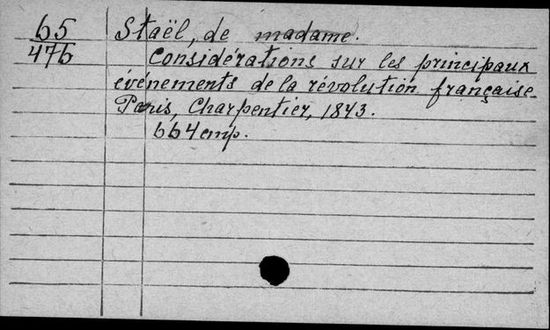 65 Staël, de madame.
476 Considérations sur les principaux
événements de la révolution française.
Paris, Charpentier, 1843.
664 стр.